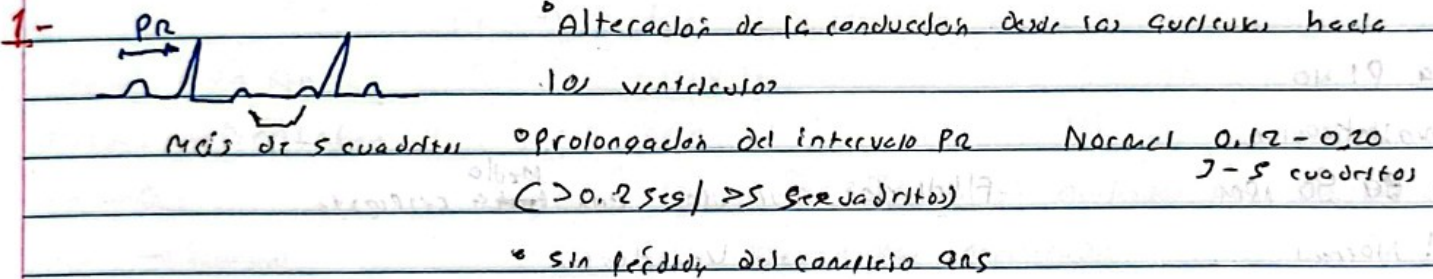 1-
PR
Más de 5 cuadritos
° Alteración de la conducción desde las aurículas hacia
los ventrículos
° Prolongación del intervalo PR Normal 0,12 - 0,20
3-5 cuadritos
(>0.2 seg/ >5 cuadritos)
° sin pérdida del complejo QRS